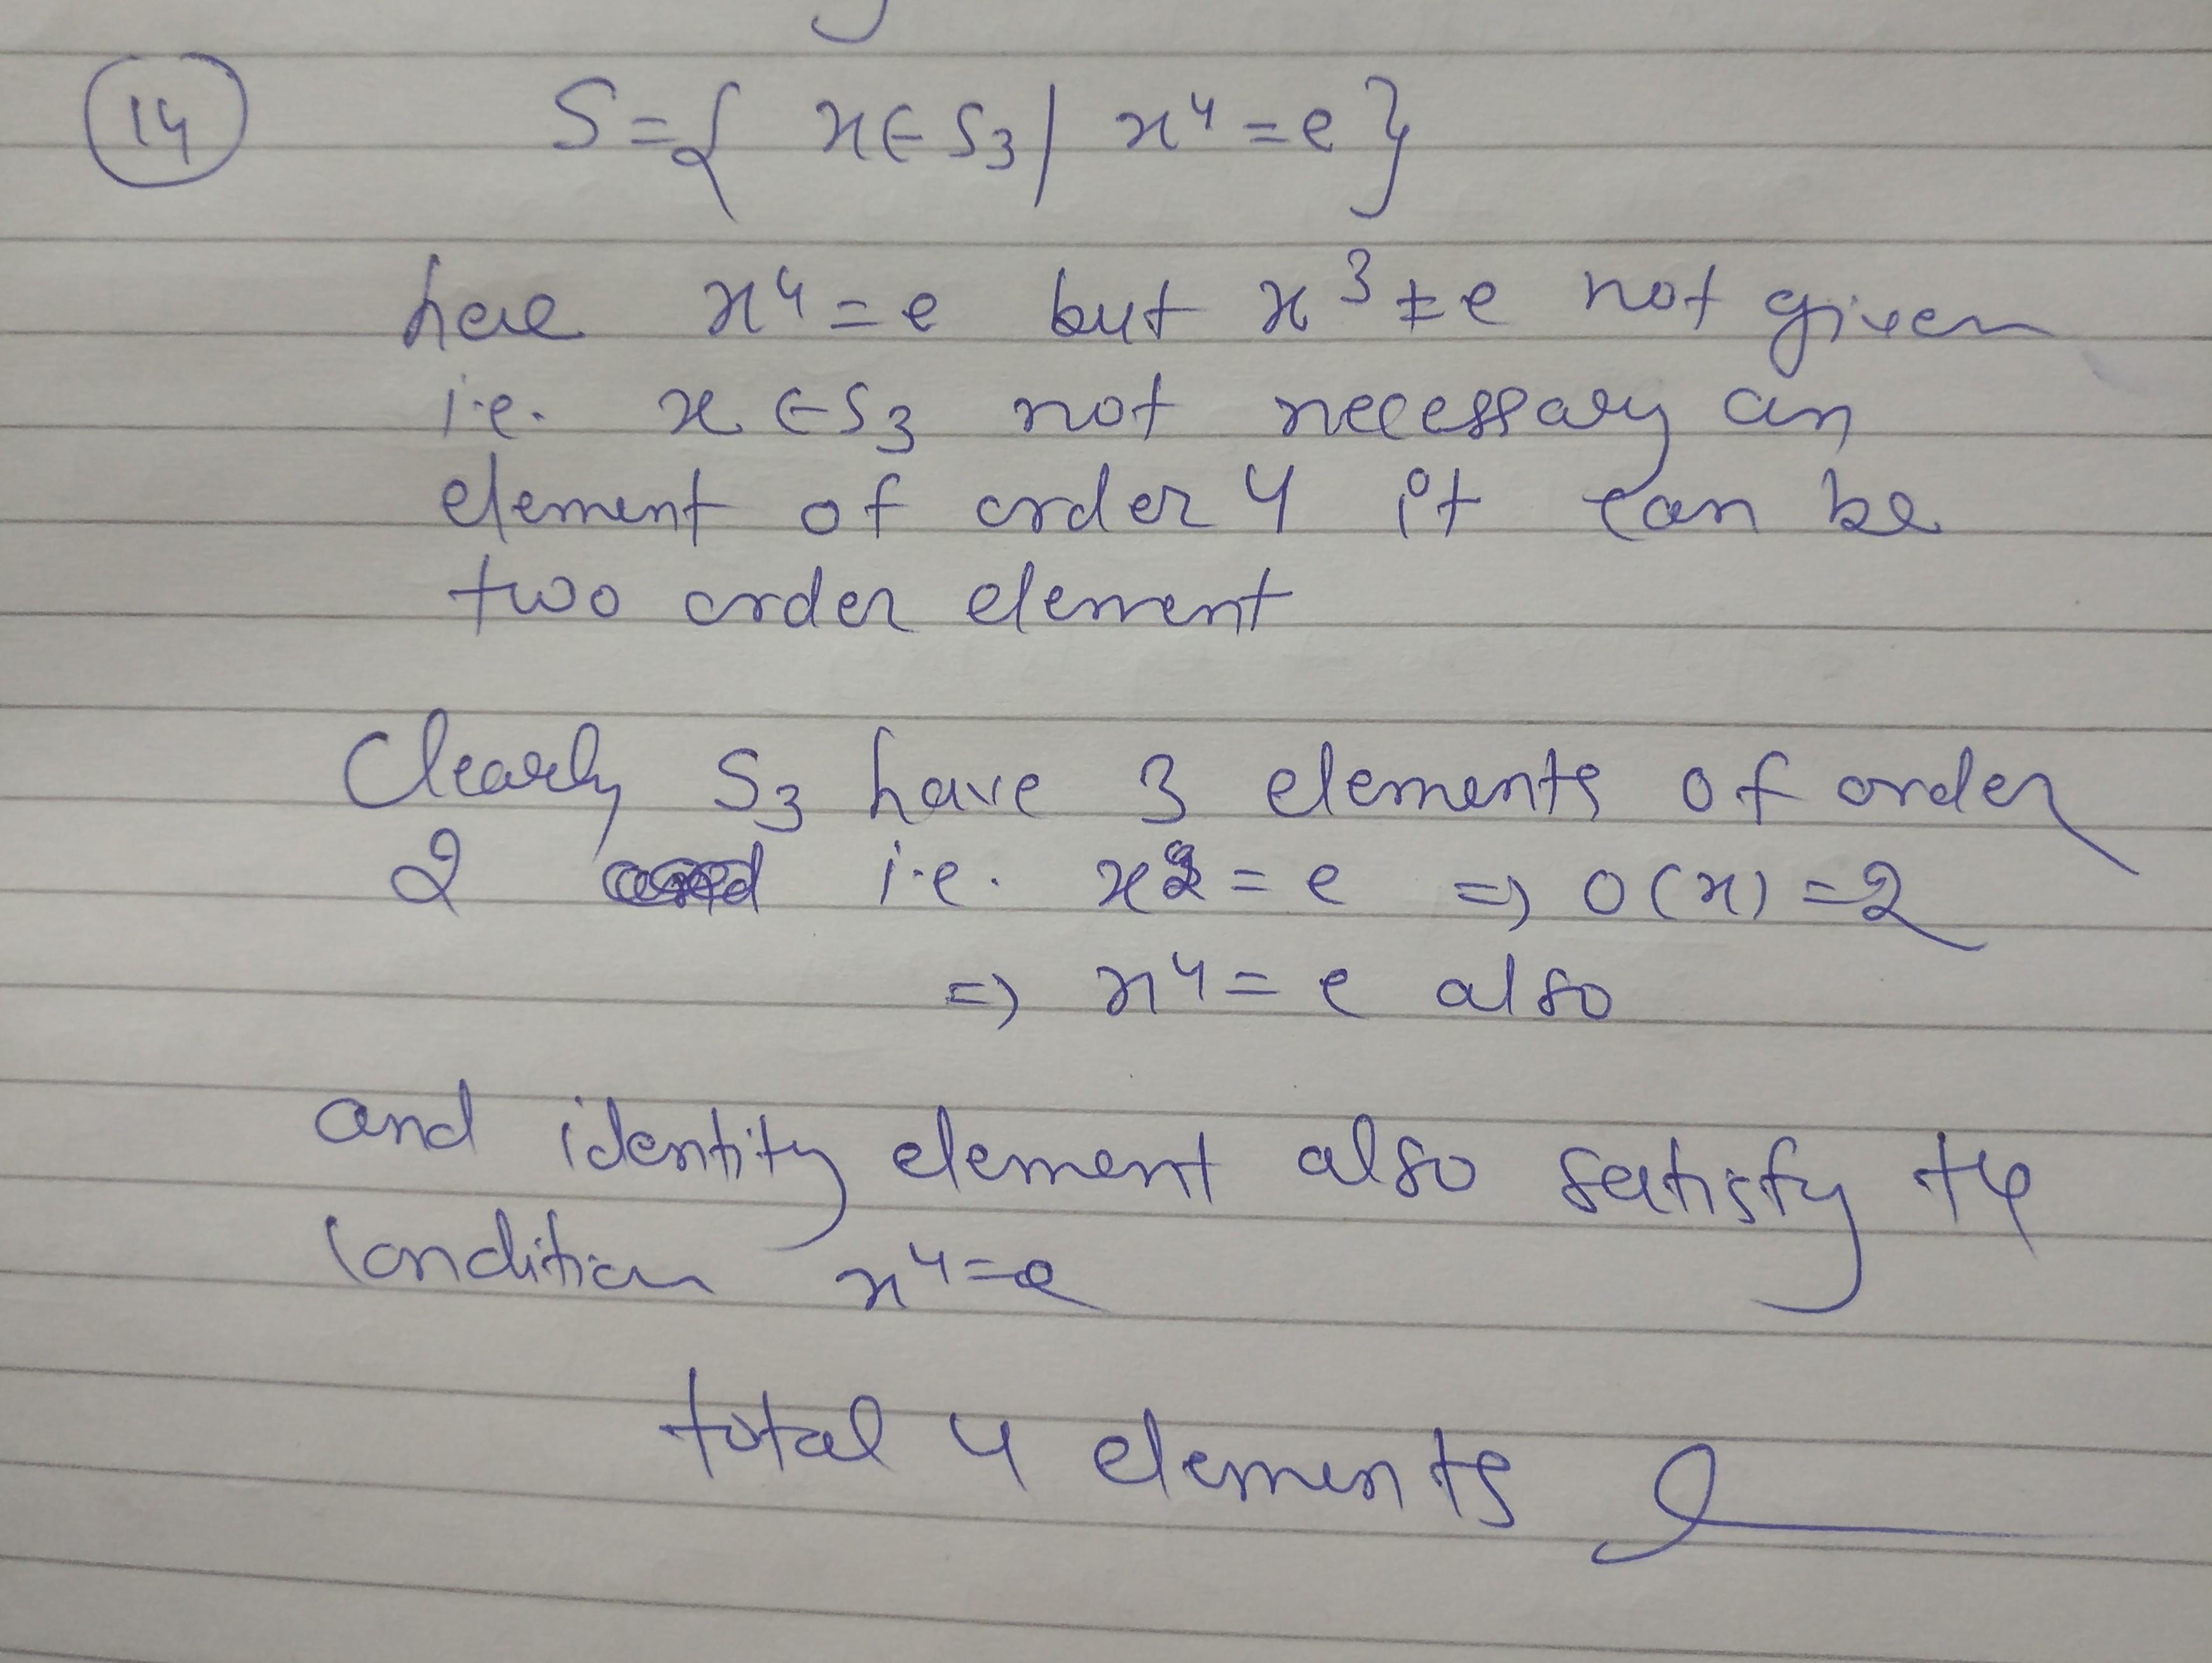 14 S = { x ∈ S₃ | x⁴ = e }
here x⁴ = e but x³ ≠ e not given
i.e. x ∈ S₃ not necessary an
element of order 4 it can be
two order element
Clearly S₃ have 3 elements of order
2 i.e. x² = e ⇒ o(x) = 2
⇒ x⁴ = e also
and identity element also satisfy the
condition x⁴ = e
total 4 elements